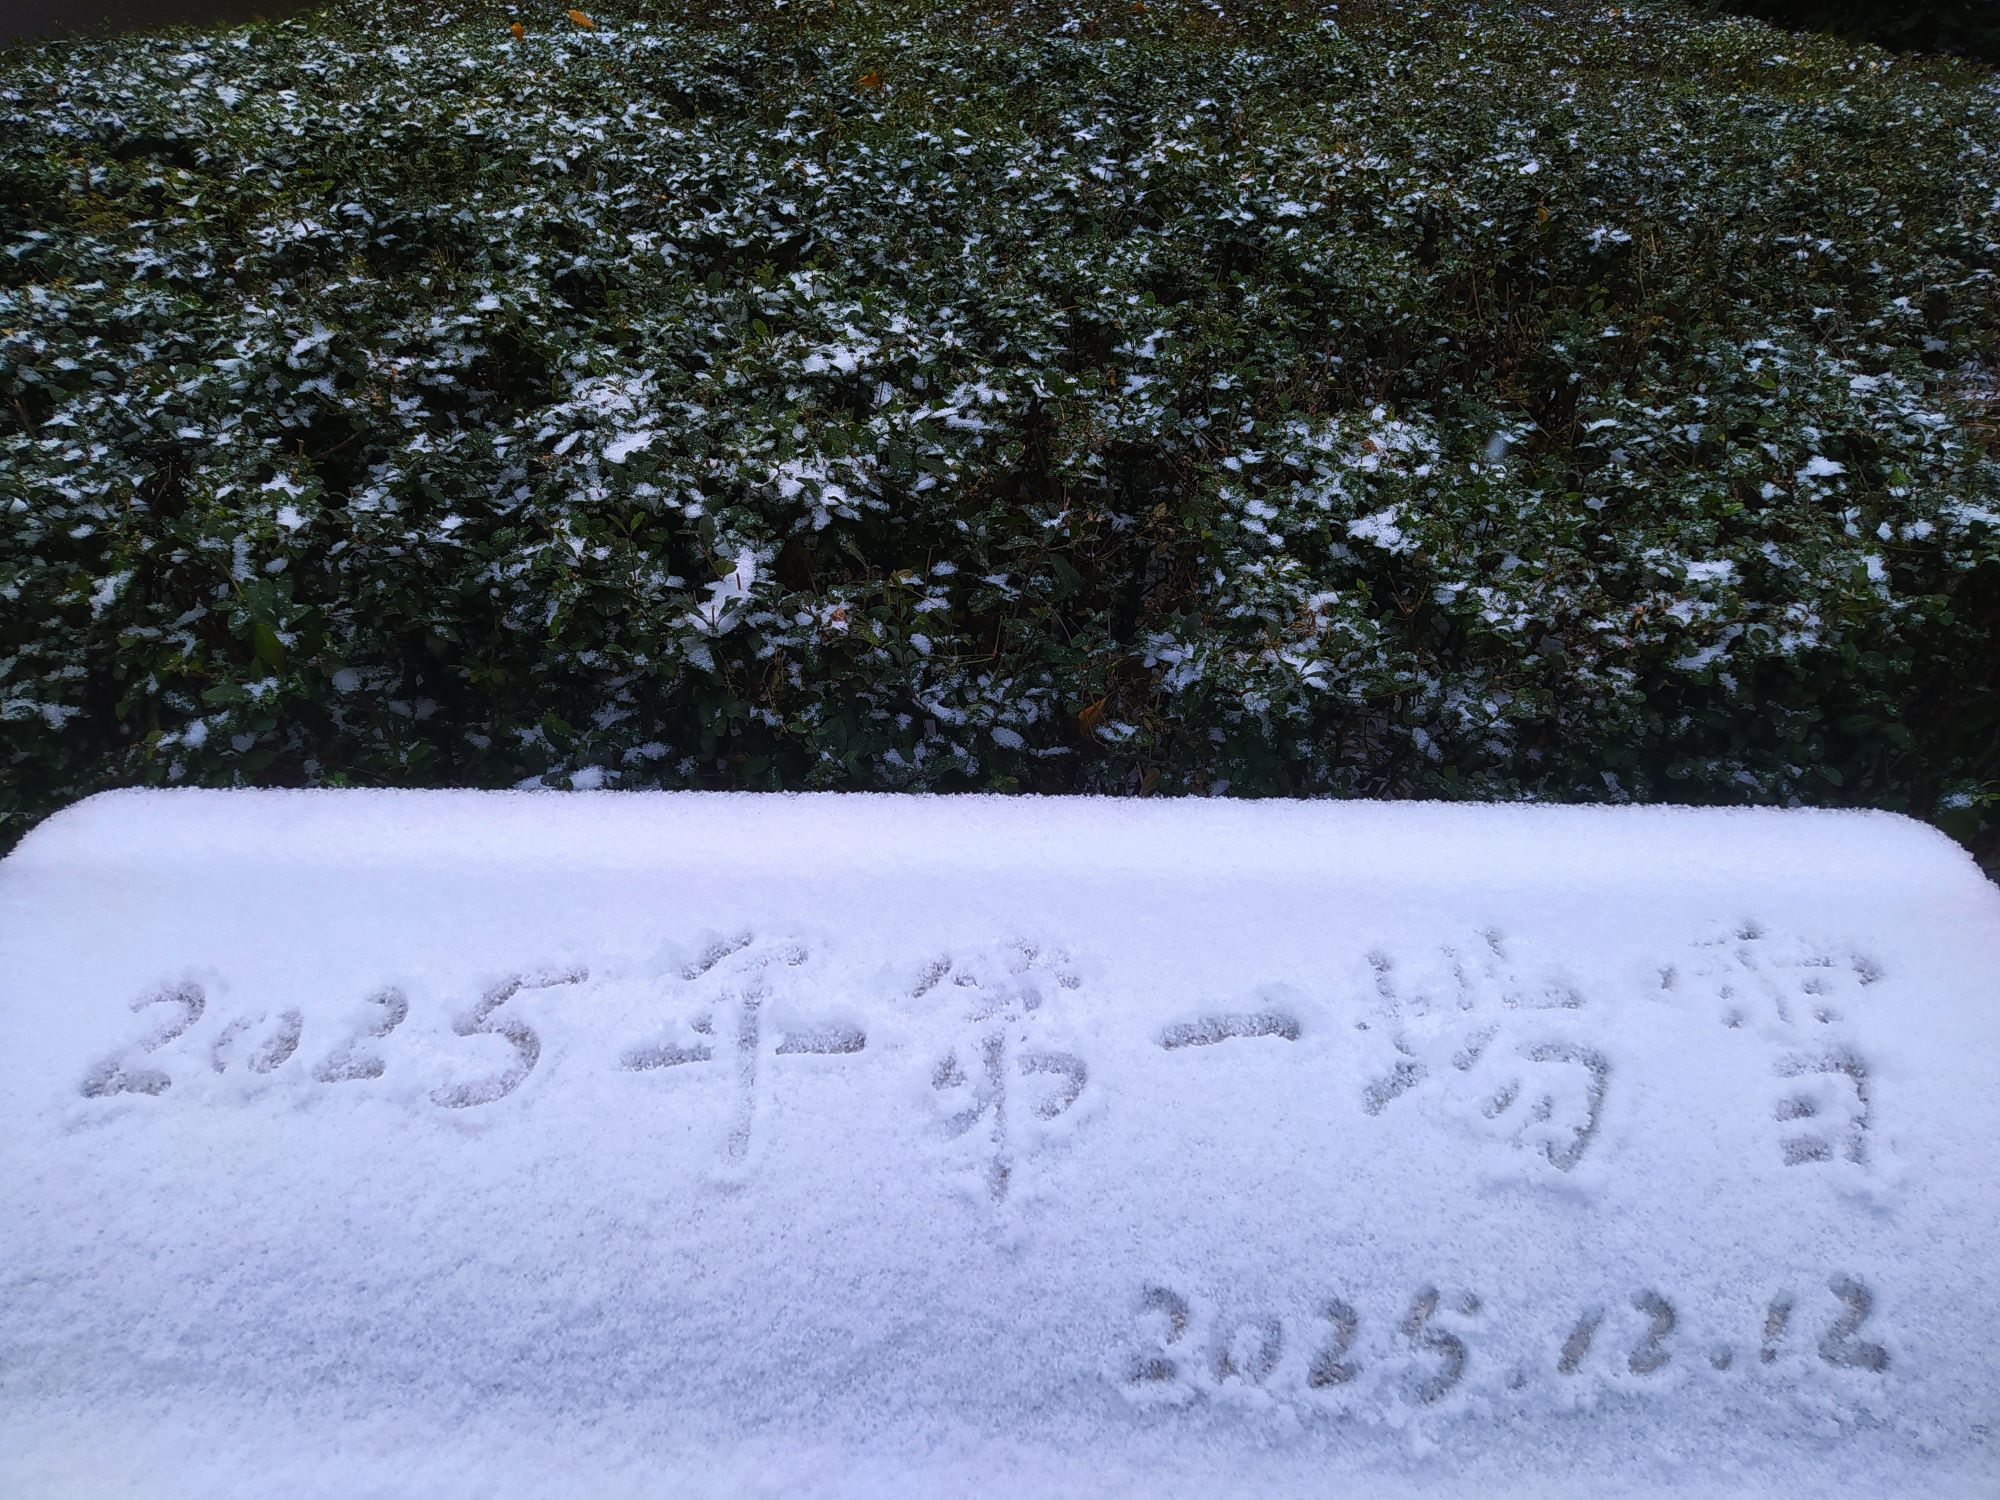 2025年第一场雪
2025.12.12